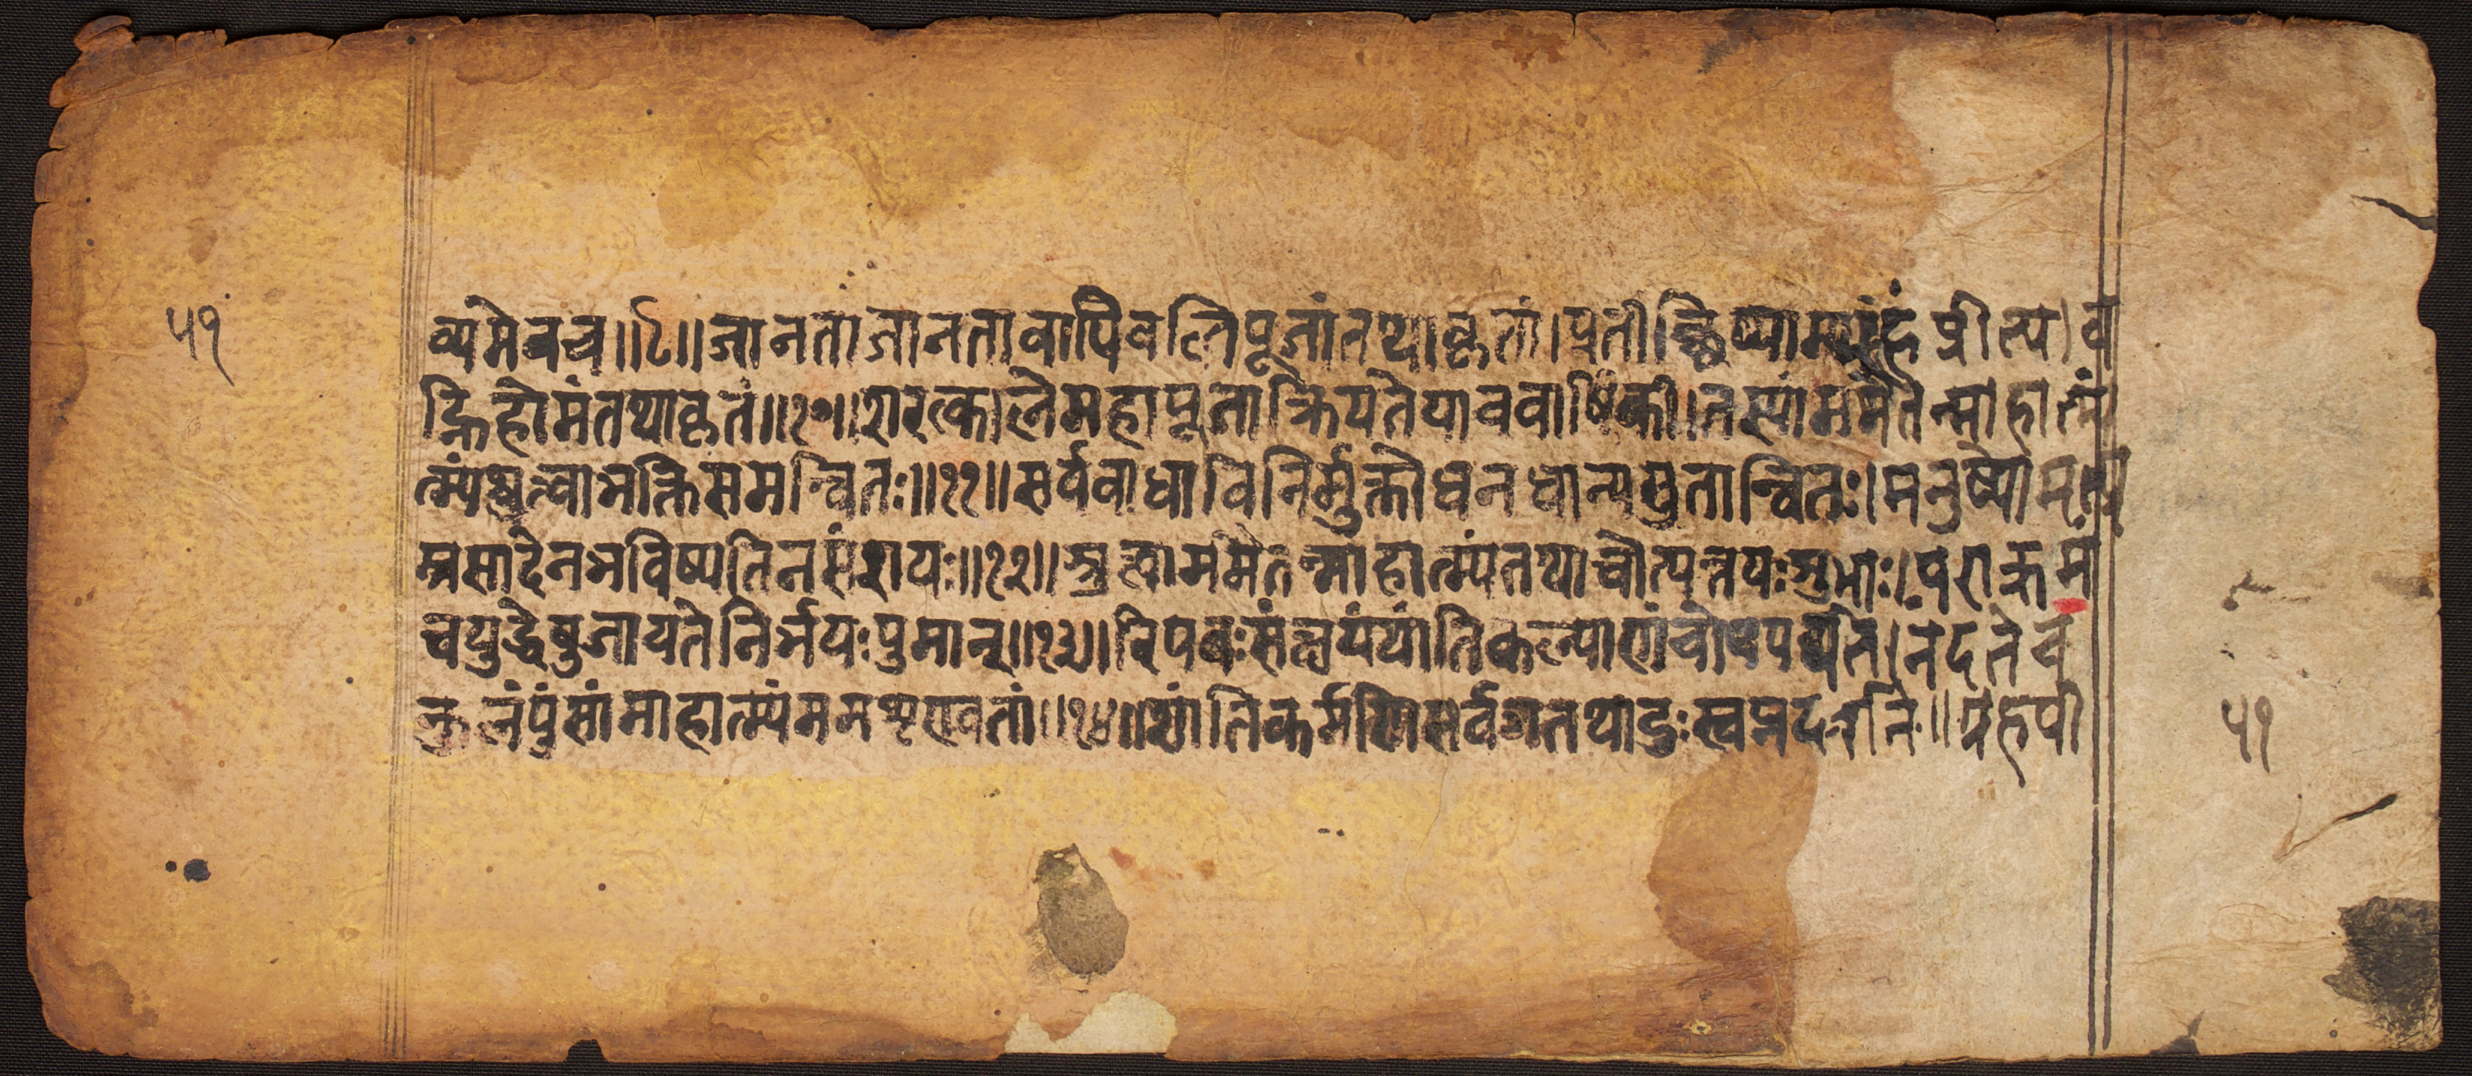 ५१
व्यमेवच॥९॥जानताजानतावापिवलिपूजांतथाकृतां।प्रतीच्छिष्याम्यहंप्रीत्या।व
ह्निहोमंतथाकृतं॥१०॥शरत्कालेमहापूजाक्रियतेयाचवार्षिकी।तस्यांममैतन्माहात्म्यं
त्म्यंश्रुत्वाभक्तिसमन्वितः॥११॥सर्वबाधाविनिर्मुक्तोधनधान्यसुतान्वितः।मनुष्योमत्
प्रसादेनभविष्यतिनसंशयः॥१२॥श्रुत्वाममैतन्माहात्म्यंतथाचोत्पत्तयःशुभाः।पराक्रमं
चयुद्धेषुजायतेनिर्भयःपुमान्॥१३॥रिपवःसंक्षयंयांतिकल्याणंचोपपद्यते।नंदतेच
कुलंपुंसांमाहात्म्यंममशृण्वतां॥१४॥शांतिकर्मणिसर्वत्रतथादुःस्वप्नदर्शने॥ग्रहपी
५१